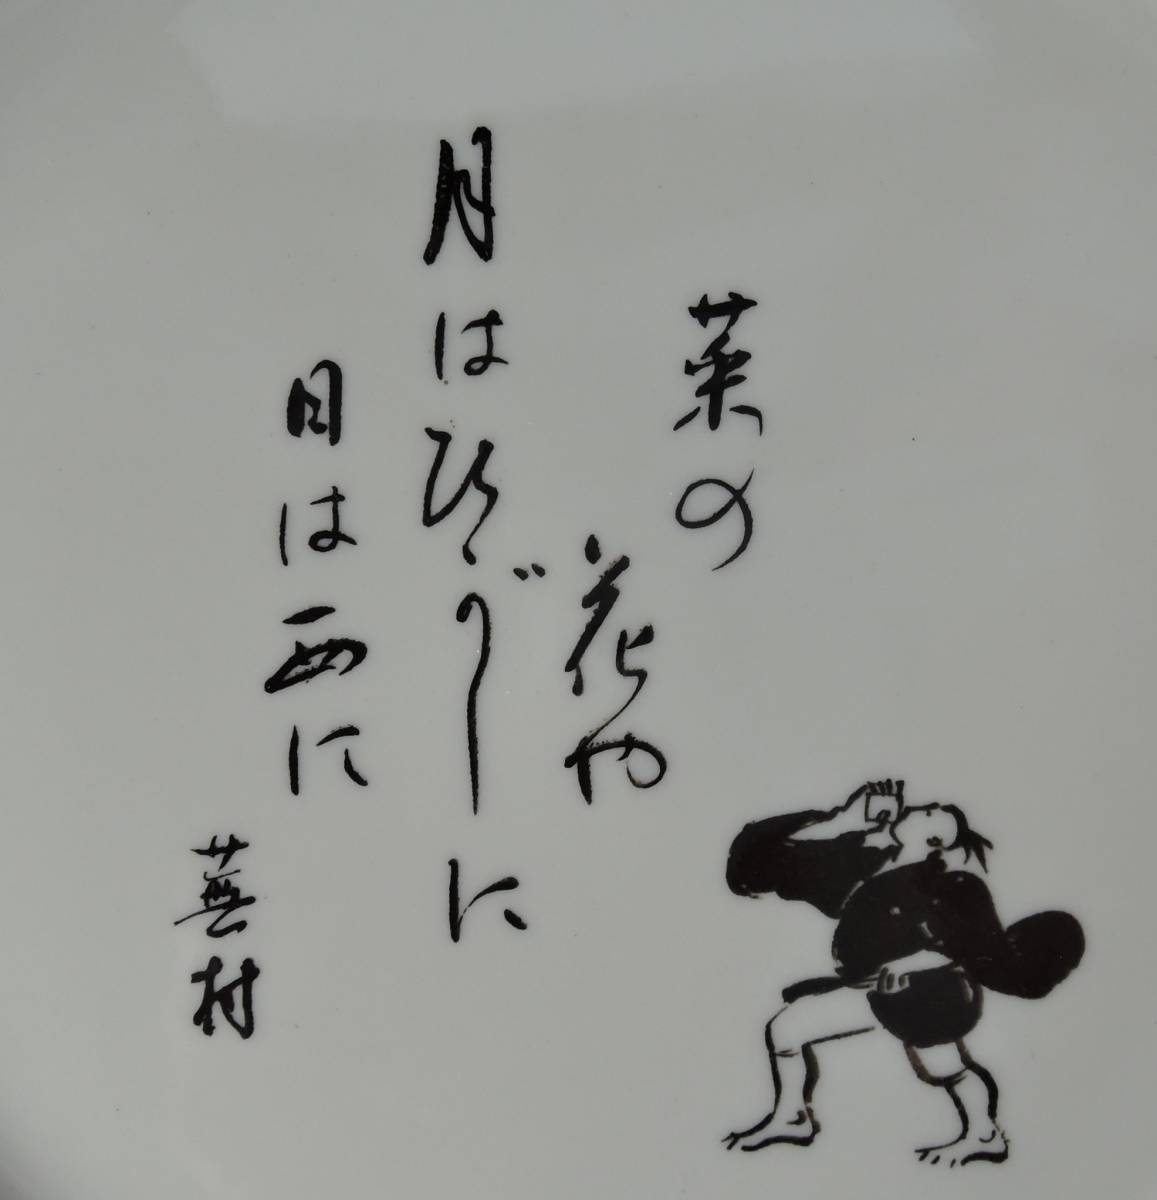 菜の
花や
月はひがしに
日は西に
蕪村